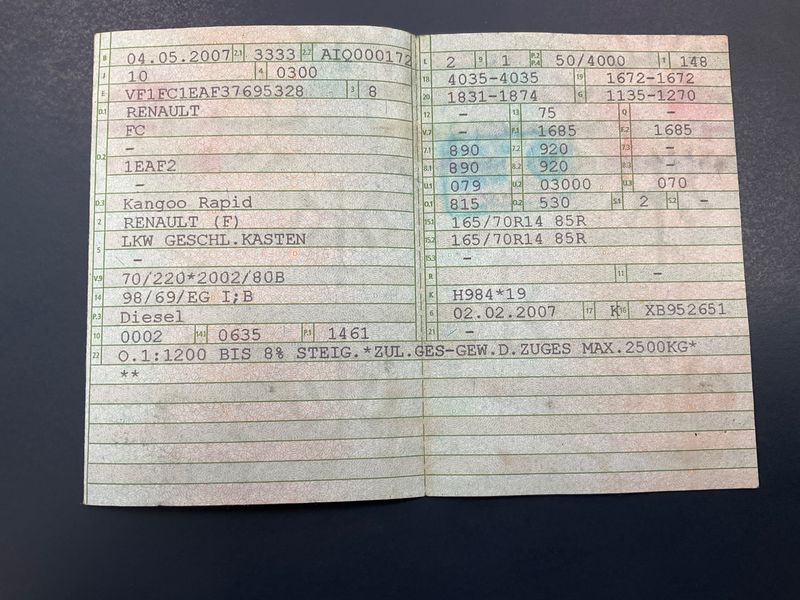 B 04.05.2007 2.1 3333 2.2 AIQ000172
J 10 4 0300
E VF1FC1EAF37695328 3 8
D.1 RENAULT
FC
-
D.2 1EAF2
-
D.3 Kangoo Rapid
2 RENAULT (F)
5 LKW GESCHL.KASTEN
-
V.9 70/220*2002/80B
14 98/69/EG I;B
P.3 Diesel
10 0002 14.1 0635 P.1 1461
22 O.1:1200 BIS 8% STEIG.*ZUL.GES-GEW.D.ZUGES MAX.2500KG*
**
L 2 9 1 P.2 P.4 50/4000 T 148
18 4035-4035 19 1672-1672
20 1831-1874 G 1135-1270
12 - 13 75 Q -
V.7 - F.1 1685 F.2 1685
7.1 890 7.2 920 7.3 -
8.1 890 8.2 920 8.3 -
U.1 079 U.2 03000 U.3 070
O.1 815 O.2 530 S.1 2 S.2 -
15.1 165/70R14 85R
15.2 165/70R14 85R
15.3 -
R 11 -
K H984*19
6 02.02.2007 17 K 16 XB952651
21 -